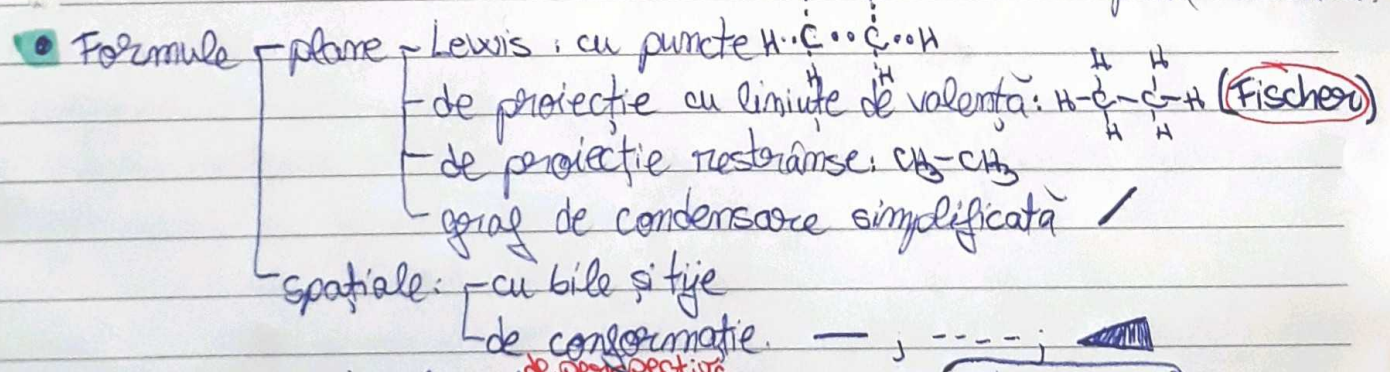 Formule plane Lewis: cu puncte H··C··C··H
H H
H H
de proiecție cu liniuțe de valență: H-C-C-H (Fischer)
H H
de proiecție restrânse: CH3-CH3
graf de condensare simplificată /
spațiale: cu bile și tije
de conformație. — ; ---- ;
de perspectivă